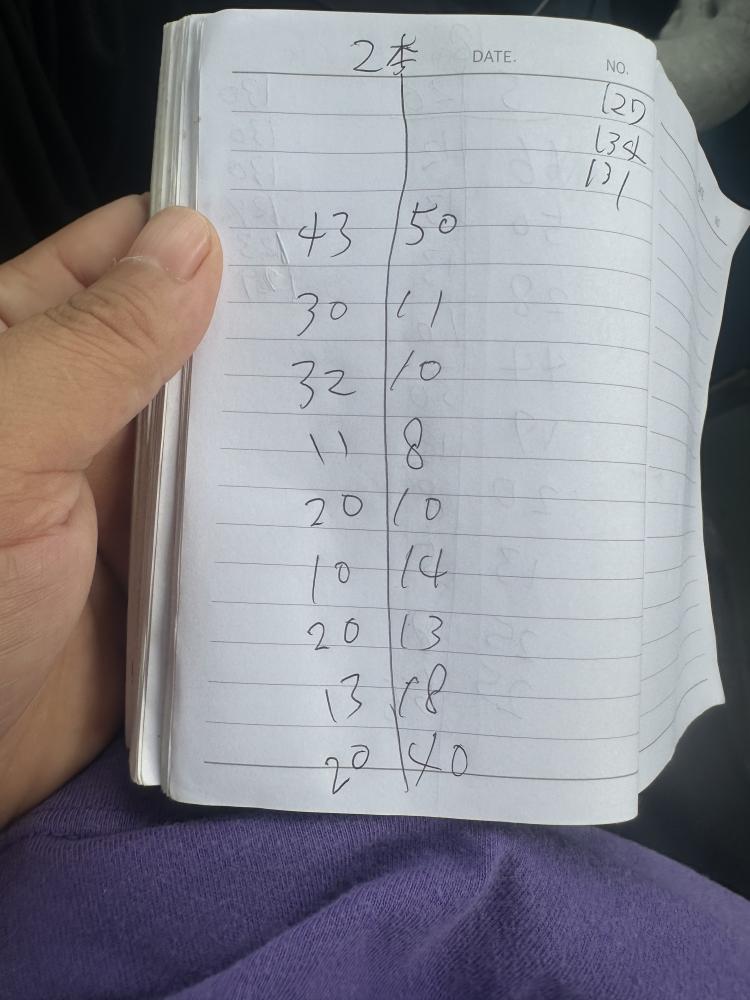 2本 DATE. NO.
127
134
131
43 50
30 11
32 10
11 8
20 10
10 14
20 13
13 18
20 40